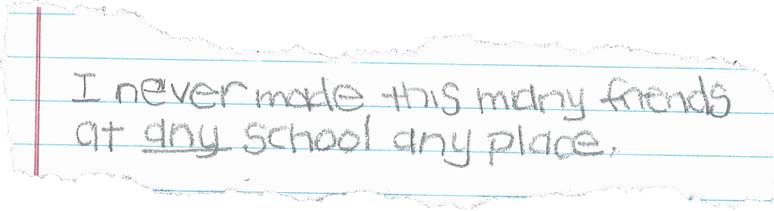 I never made this many friends
at any school any place.